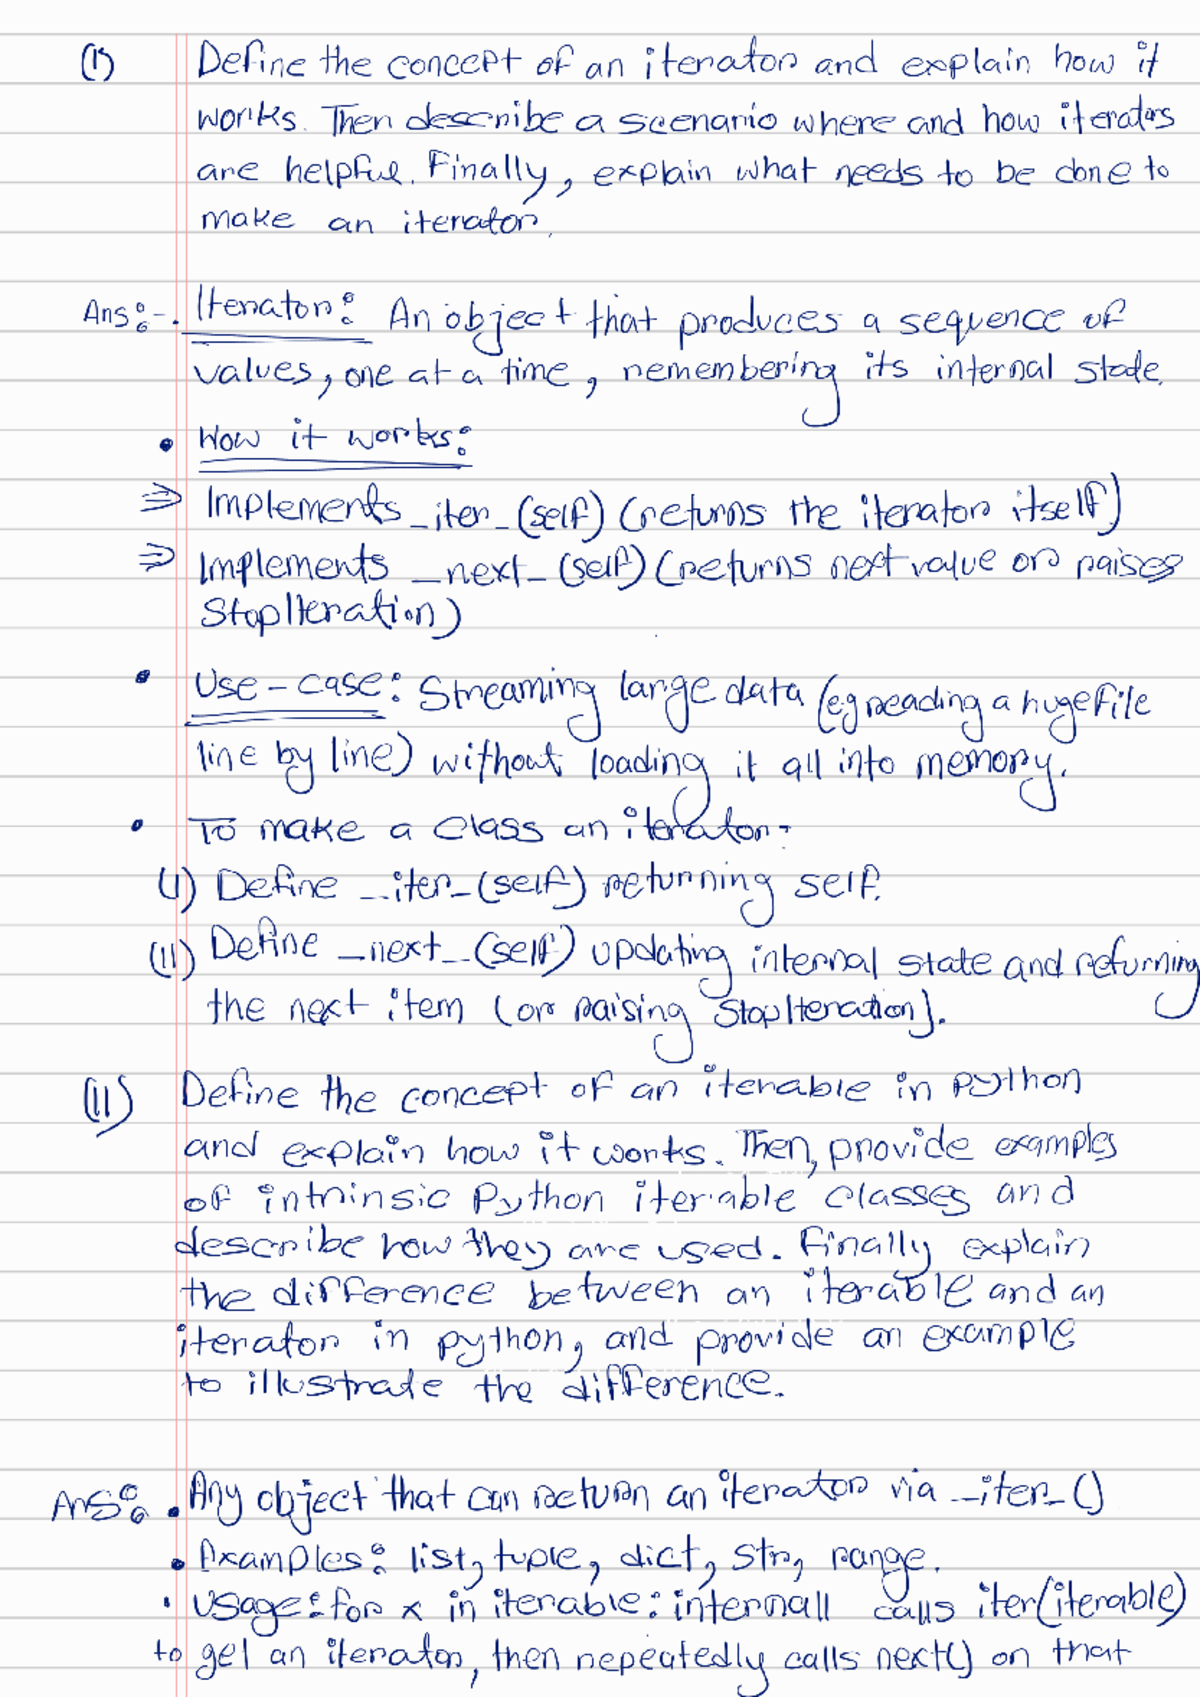 (I) Define the concept of an iterator and explain how it
works. Then describe a scenario where and how iterators
are helpful. Finally, explain what needs to be done to
make an iterator.
Ans:- . Iterator: An object that produces a sequence of
values, one at a time, remembering its internal state.
• How it works:
⇒ Implements _iter_(self) (returns the iterator itself)
⇒ Implements _next_(self) (returns next value or raises
StopIteration)
• Use-case: Streaming large data (eg reading a huge file
line by line) without loading it all into memory.
• To make a class an iterator:
(I) Define _iter_(self) returning self.
(II) Define _next_(self) updating internal state and returning
the next item (or raising StopIteration).
(II) Define the concept of an iterable in python
and explain how it works. Then, provide examples
of intrinsic Python iterable classes and
describe how they are used. Finally explain
the difference between an iterable and an
iterator in python, and provide an example
to illustrate the difference.
Ans: • Any object that can return an iterator via _iter_()
• Examples: list, tuple, dict, str, range.
• Usage: for x in iterable: internall calls iter(iterable)
to get an iterator, then repeatedly calls next() on that